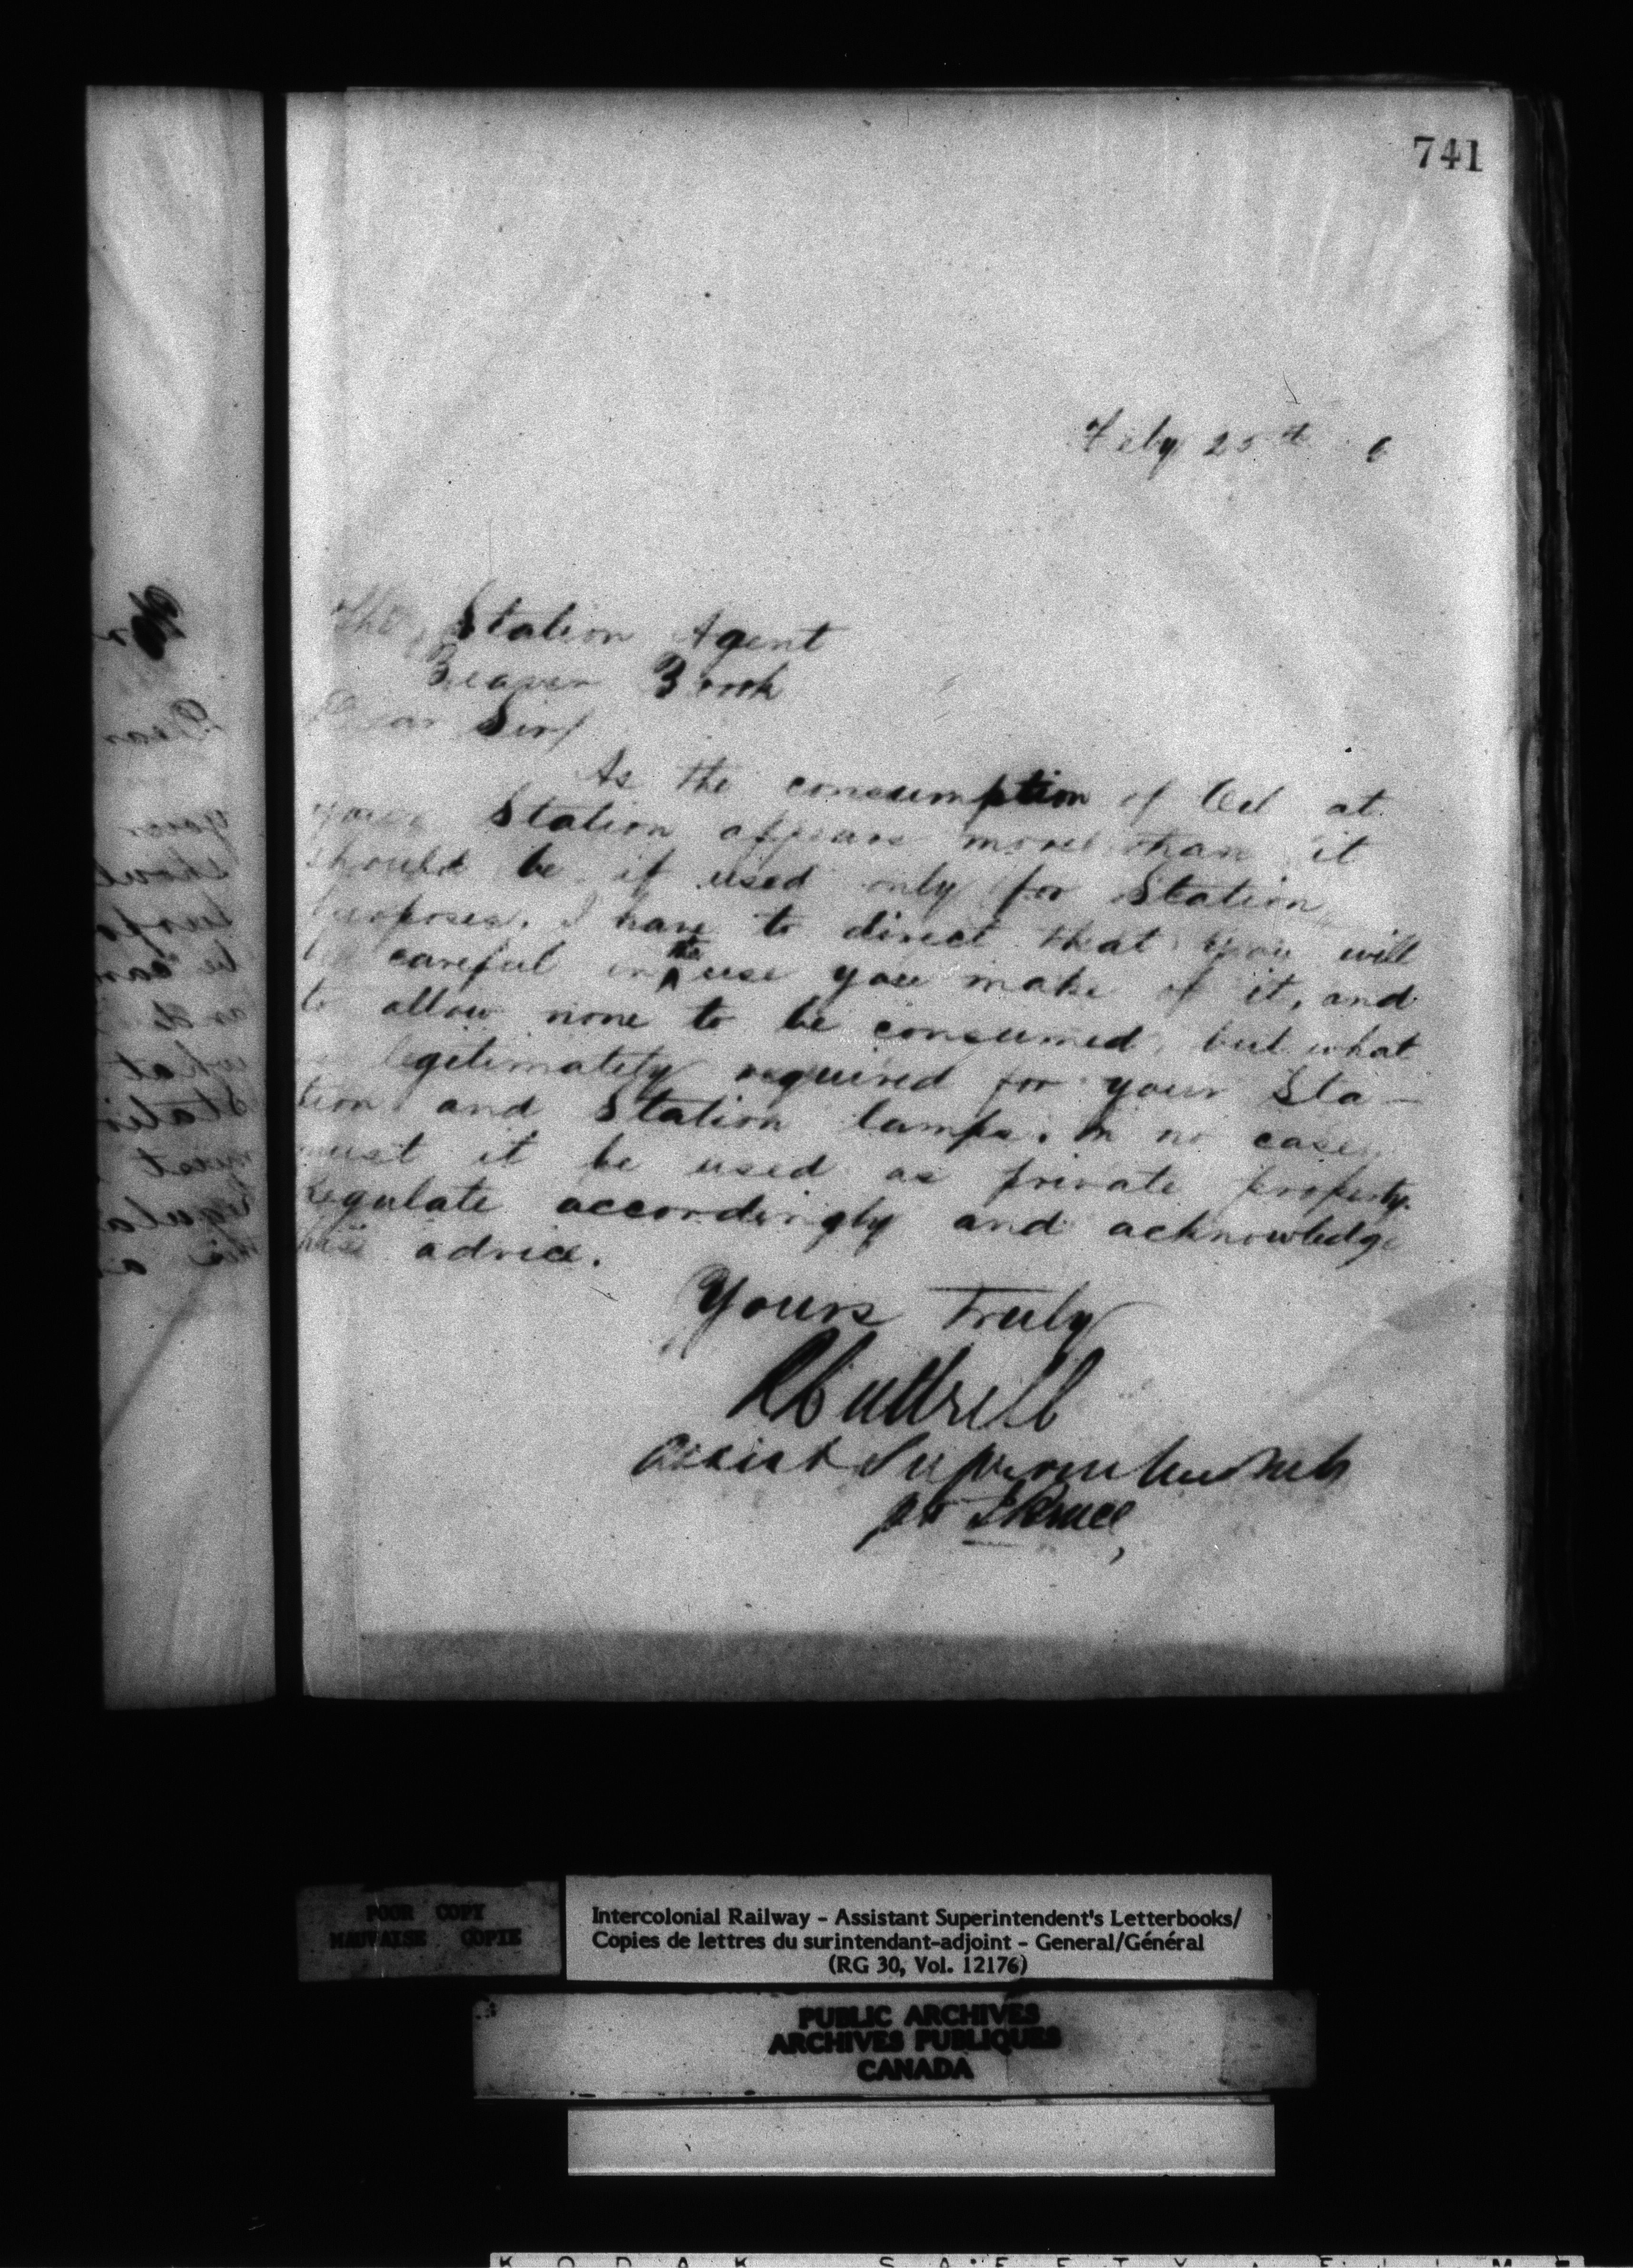 741
Feby 25th 6
The Station Agent
Beaver Brook
Dear Sir/
As the consumption of Oil at
your Station appears more than it
should be if used only for Station
purposes. I have to direct that you will
be careful in the use you make of it, and
to allow none to be consumed, but what
legitimately required for your Sta-
tion and Station lamps. In no case
must it be used as private property.
Regulate accordingly and acknowledge
this advice.
Yours Truly
Luttrell
Assist Superintendent
pr
POOR COPY
MAUVAISE COPIE
Intercolonial Railway - Assistant Superintendent's Letterbooks/
Copies de lettres du surintendant-adjoint - General/Général
(RG 30, Vol. 12176)
PUBLIC ARCHIVES
ARCHIVES PUBLIQUES
CANADA
KODAK SAFETY FILM